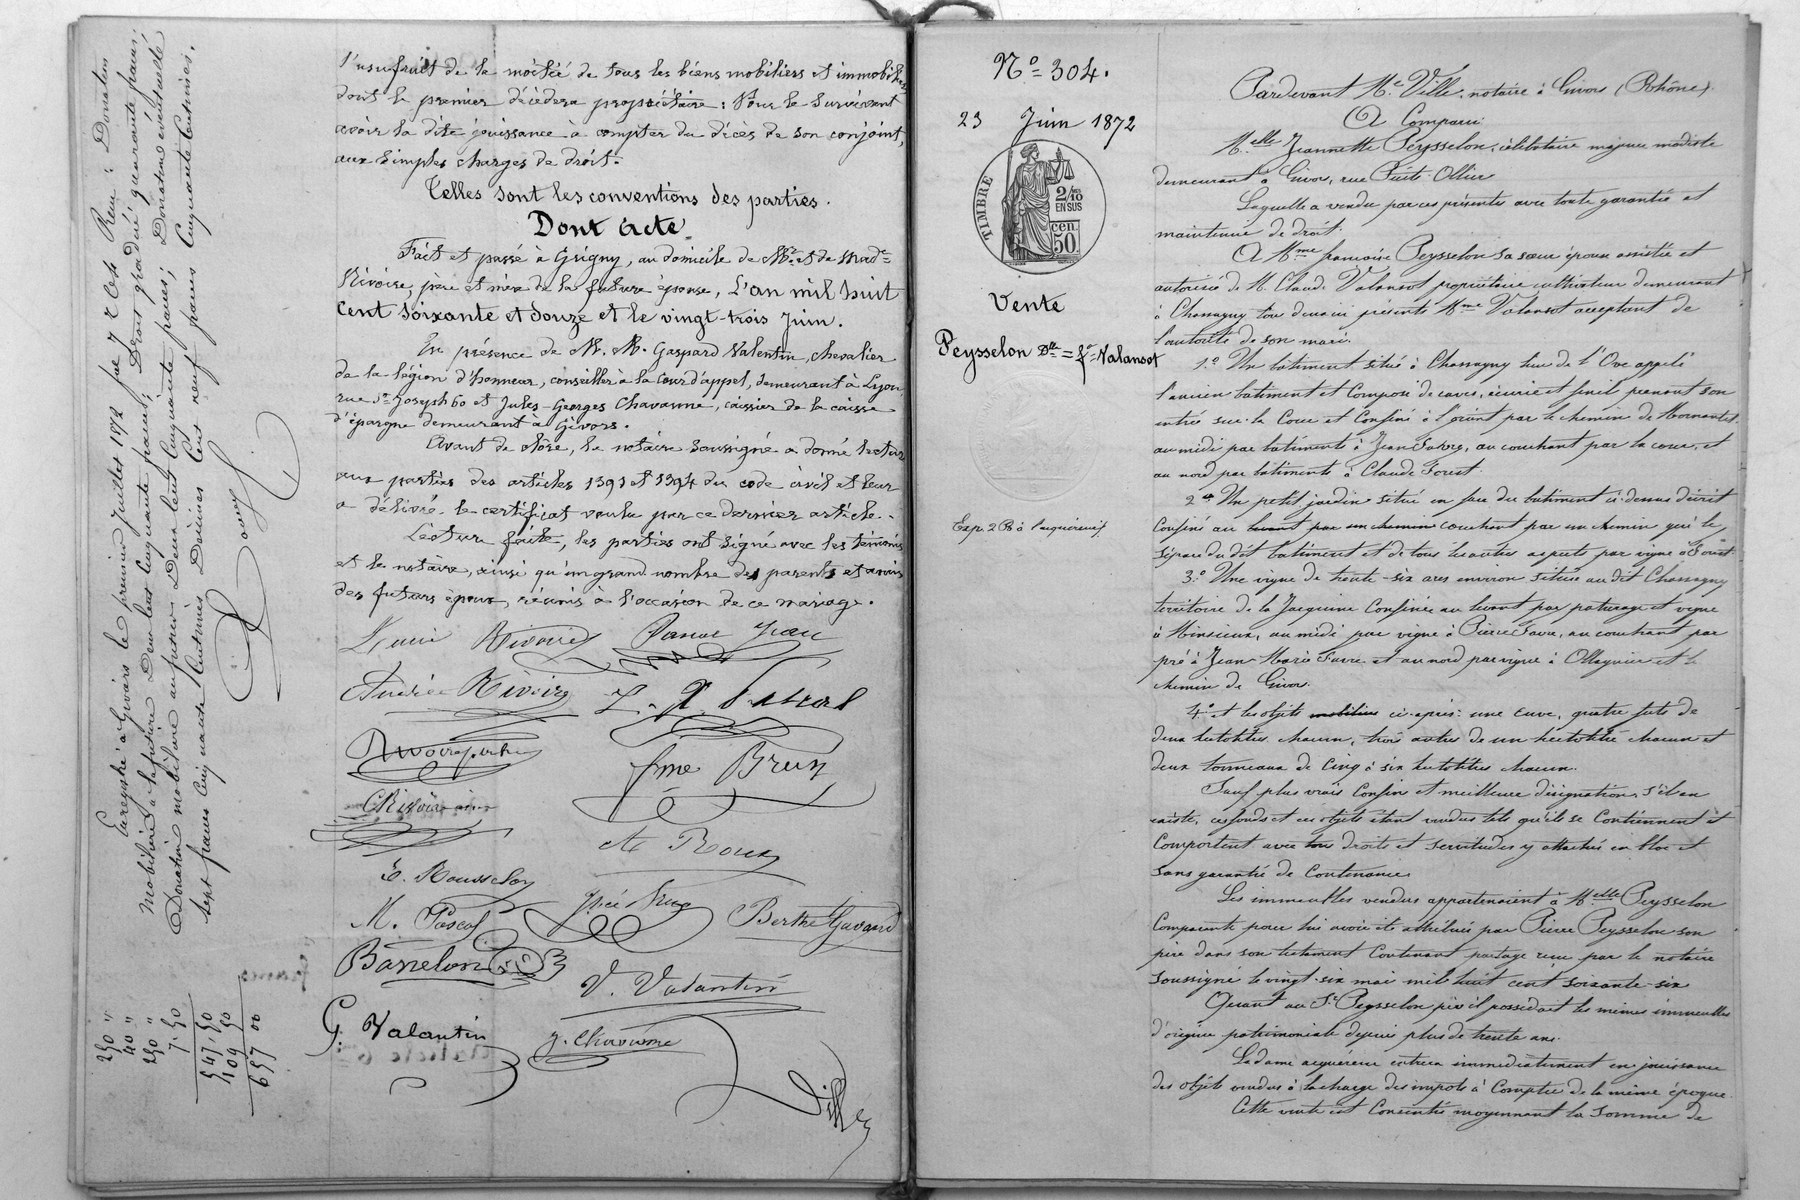 l'usufruit de la moitié de tous les biens mobiliers et immobiliers
dont le premier décédera propriétaire : Pour le Survivant
avoir la dite jouissance à compter du décès de son conjoint,
aux simples charges de droit.
Telles sont les conventions des parties.
Dont acte.
Fait et passé à Grigny, au domicile de Mr. et de Mad.e
Rivoire, père et mère de la future épouse, L'an mil huit
cent soixante et douze et le vingt-trois Juin.
En présence de M. M. Gaspard Valentin, chevalier
de la légion d'honneur, conseiller à la cour d'appel, demeurant à Lyon
rue St Joseph 60 et Jules-Georges Chavanne, caissier de la caisse
d'épargne demeurant à Givors.
Avant de clore, le notaire soussigné a donné lecture
aux parties des articles 1391 et 1394 du code civil et leur
a délivré le certificat voulu par ce dernier article.
Lecture faite, les parties ont signé avec les témoins
et le notaire, ainsi qu'un grand nombre des parents et amis
des futurs époux, réunis à l'occasion de ce mariage.
Rivoire Pascal Jean
Rivoire
fme Brun
Rivoire
Roux
E. Rousselon
M. Pascal
Berthe Gavaend
Banelon
V. Valantin
G. Valantin
J. Chavanne
Ville
Enregistré à Givors le premier Juillet 1872 Reçu : Donation
mobilière Deux cent cinquante francs ; Droit gradué quarante francs ;
Donation mobilière au futur Deux cent cinquante francs ; Donation éventuelle
sept francs cinquante centimes Décimes Cent neuf francs Cinquante Centimes.
250 "
40 "
250 "
7.50
547.50
109 50
657 00
No 304.
23 Juin 1872
TIMBRE
2/10
EN SUS
50 cen.
Vente
Peysselon Dlle = fe Valansot
Exp. 2 R à l'acquéreur
Pardevant Me Ville, notaire à Givors (Rhône).
A Comparu
Melle Jeannette Peysselon, célibataire majeure modiste
demeurant à Givors, rue Puits Ollier
Laquelle a vendu par ces présentes avec toute garantie et
maintenue de droit.
A Mme françoise Peysselon sa sœur épouse assistée et
autorisée de M. Claude Valansot propriétaire cultivateur demeurant
à Chassagny tous deux ici présents Mme Valansot acceptant de
l'autorité de son mari.
1o Un bâtiment situé à Chassagny lieu de l'Ove appelé
l'ancien batiment et Composé de caves, écurie et fenil prenant son
entrée sur la Cour et Confiné à l'orient par le chemin de Mornant
au midi par bâtiments à Jean Favre, au couchant par la cour, et
au nord par batiments à Claude Forest
2o Un petit jardin situé en face du batiment ci-dessus décrit
Confiné au levant par un chemin couchant par un chemin qui le
sépare du dit batiment et de tous les autres aspects par vigne à Forest
3o Une vigne de trente-six ares environ située au dit Chassagny
territoire de la Jacquine Confinée au levant par paturage et vigne
à Minsieux, au midi par vigne à Pierre Favre, au couchant par
pré à Jean Marie Favre et au nord par vigne à Ollagnier et le
chemin de Givors.
4o et les objets mobiliers ci-après : une cuve, quatre futs de
deux hectolitres chacun, trois autres de un hectolitre chacun et
deux tonneaux de Cinq à six hectolitres chacun.
Sauf plus vrais Confins et meilleure désignation, s'il en
existe, ces fonds et ces objets étant vendus tels qu'ils se Contiennent et
Comportent avec tous droits et servitudes y attachés en bloc et
sans garantie de Contenance.
Les immeubles vendus appartenaient à Melle Peysselon
Comparante pour lui avoir été attribués par Pierre Peysselon son
père dans son testament Contenant partage reçu par le notaire
soussigné le vingt-six mai mil huit cent soixante-six
Quant au Sr Peysselon père il possédait les mêmes immeubles
d'origine patrimoniale depuis plus de trente ans.
La dame acquéreur entrera immédiatement en jouissance
des objets vendus à la charge des impots à Compter de la même époque.
Cette vente est Consentie moyennant la Somme de